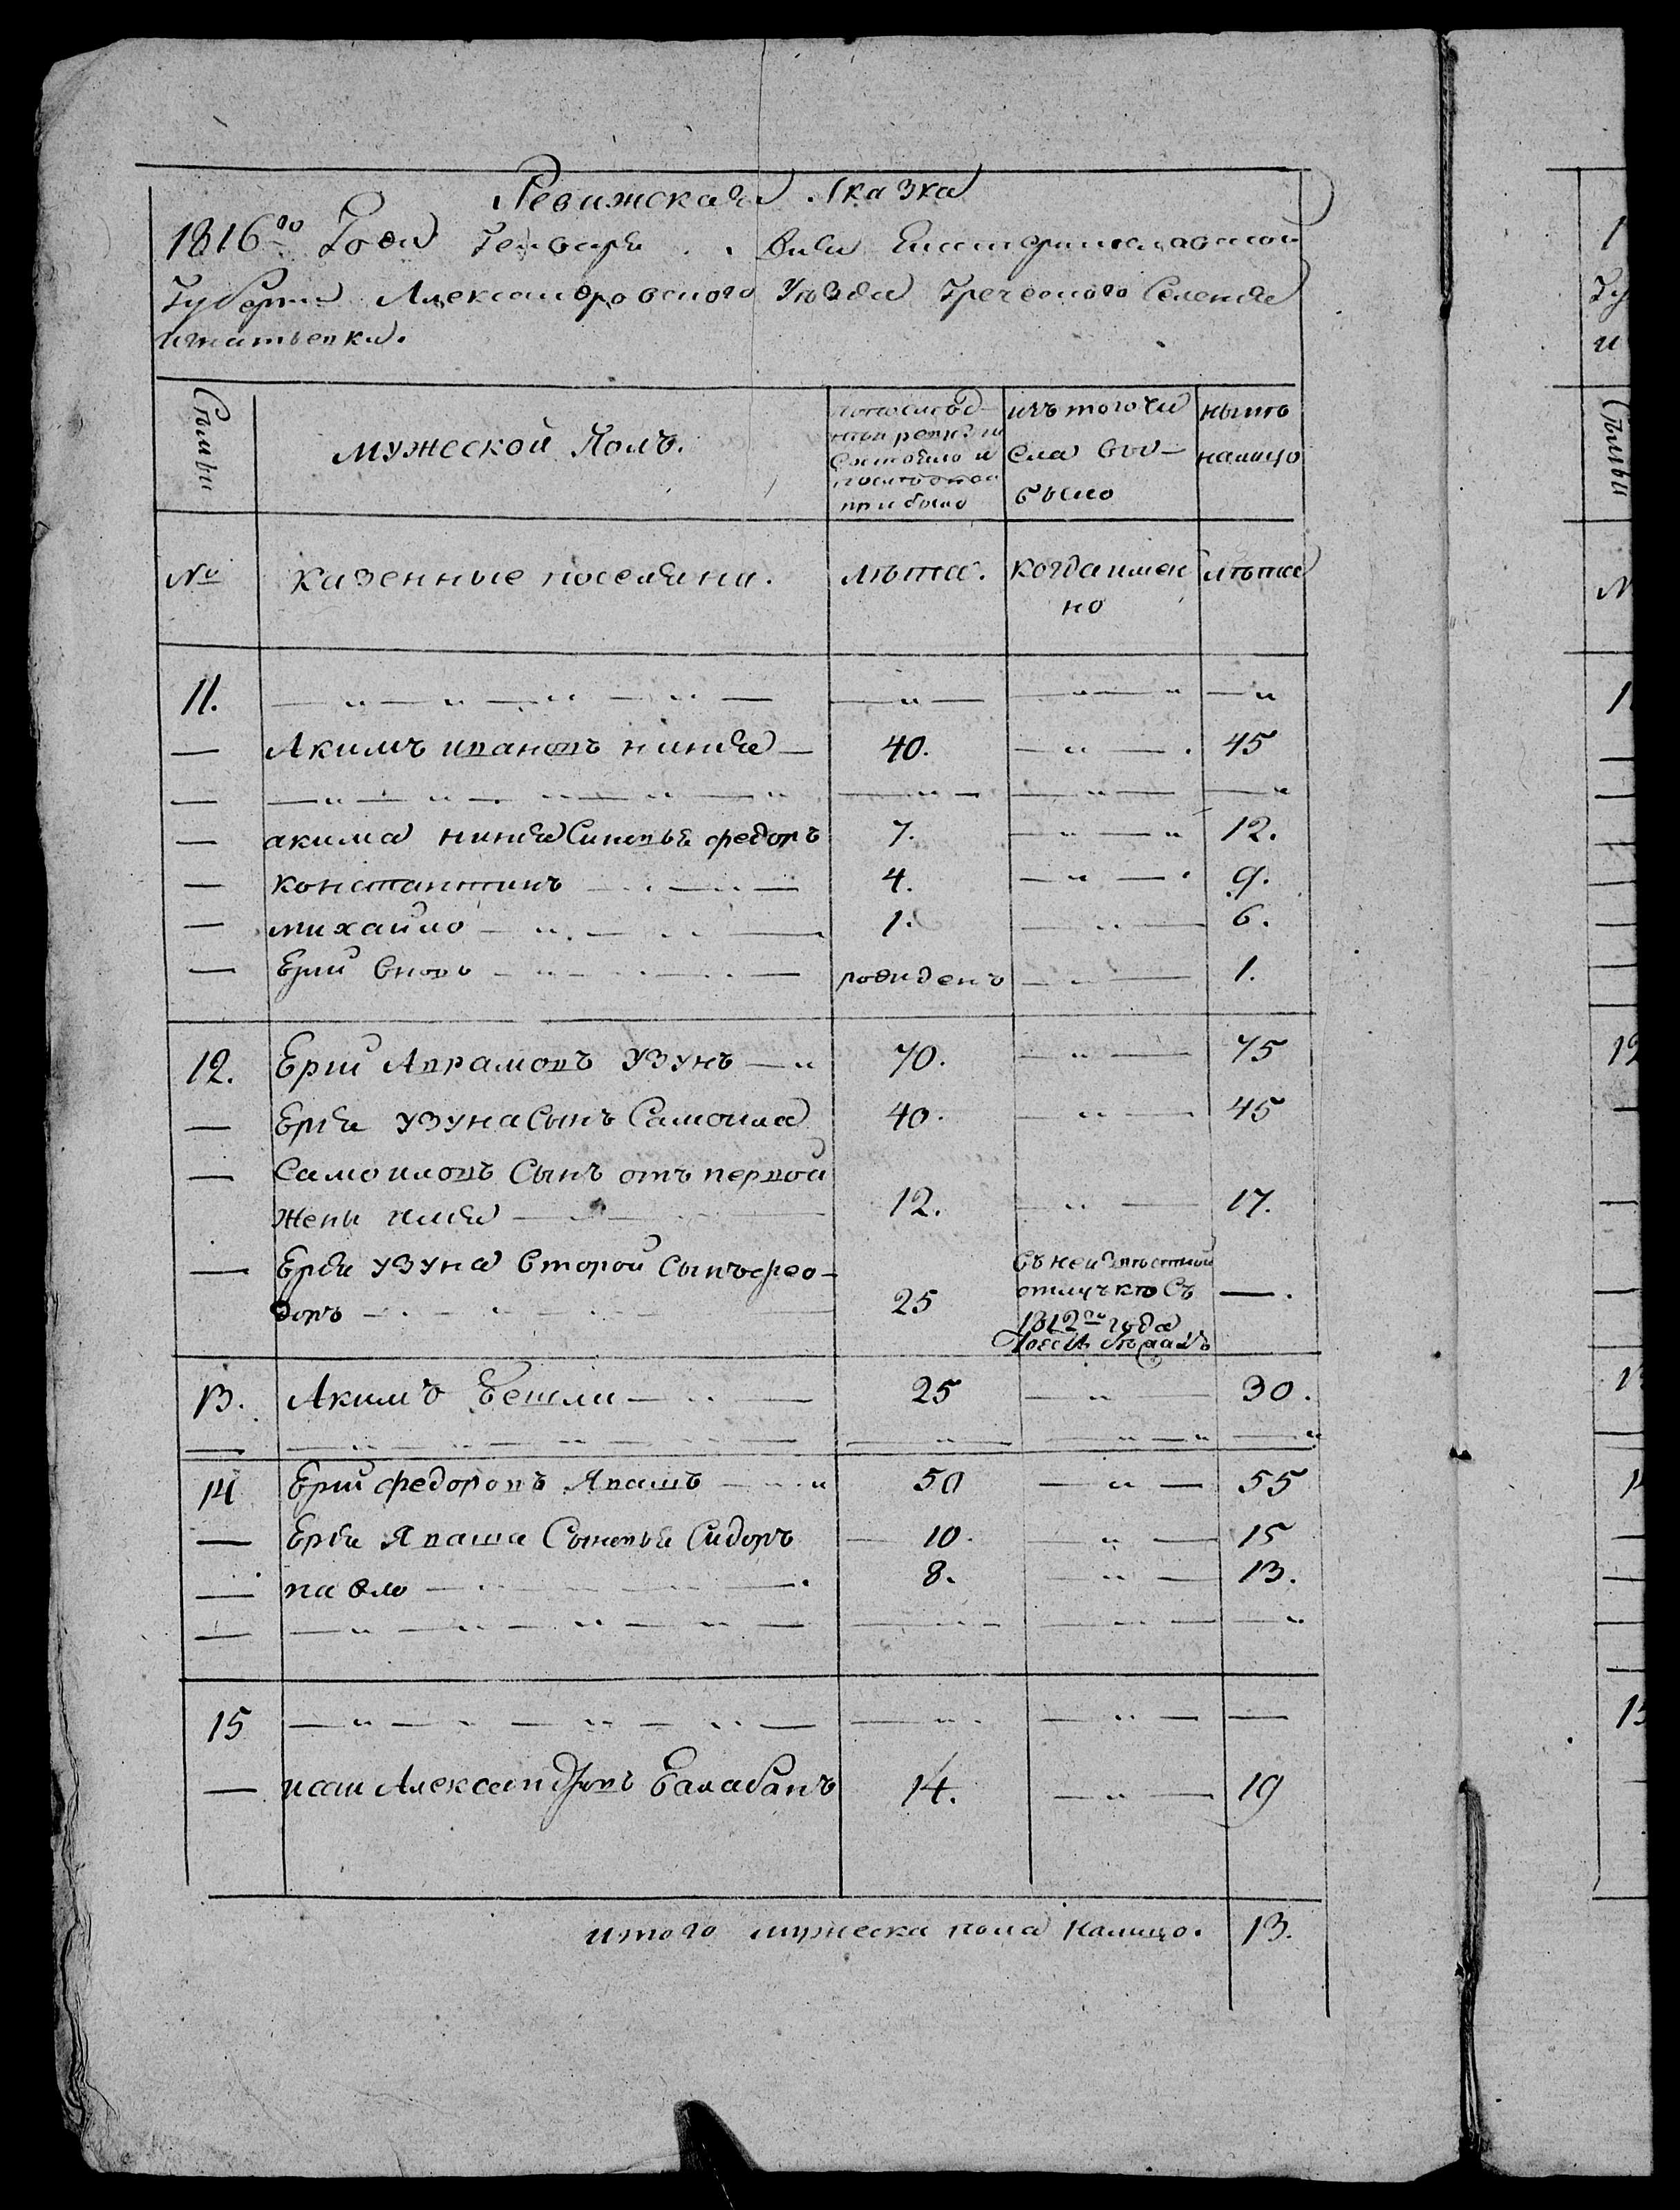 Ревижская Сказка
1816го Года Генваря . . дня Екатеринославской
Губернии Александровского Уезда Греческого Селения
игнатьевки.
Семьи
мужеской Полъ.
по последней ревизии состояло и после оной прибыло
изъ того числа выбыло
ныне налицо
№ казенные поселяни. лѣта. когда именно лѣта
11. — „ — „ — „ — „ — — „ — — „ — „ — „
— Акимъ ивановъ нинья — 40. — „ — . 45
— — „ — „ — „ — „ — „ — „ — — „ — — „
— акима нинья Синовья федоръ 7. — „ — „ 12.
— константинъ — „ — „ — 4. — „ — . 9.
— михайло — „ — „ — 1. — „ — 6.
— Ерий вновь — „ — „ — рожденъ — „ — 1.
12. Ерий Аврамовъ Узунъ — „ 70. — „ — 75
— Ерия узуна Сынъ Самоила 40. — „ — 45
— Самоиловъ Сынъ отъ первой
жены илия — „ — 12. — „ — 17.
— Ерия узуна второй Сынъ фео-
доръ — „ — „ — 25 въ неизвѣстной отлучкѣ Съ 1812го года — .
13. Акимъ Бешли — „ — 25 — „ — 30.
— — „ — „ — „ — „ — — „ — — „ — „ — „
14 Ерий федоровъ Явашъ — „ 50 — „ — 55
— Ерия Яваша Сыновья Сидоръ — 10. — „ — 15
— павло — „ — „ — . 8. — „ — 13.
— — „ — „ — „ — „ — — „ — — „ — — „
15 — „ — „ — „ — „ — — „ — — „ — —
— исаи Александровъ Балабанъ 14. — „ — 19
итого мужеска пола налицо. 13.
1
Гу
и
Семьи
№
1
12
13
14
15